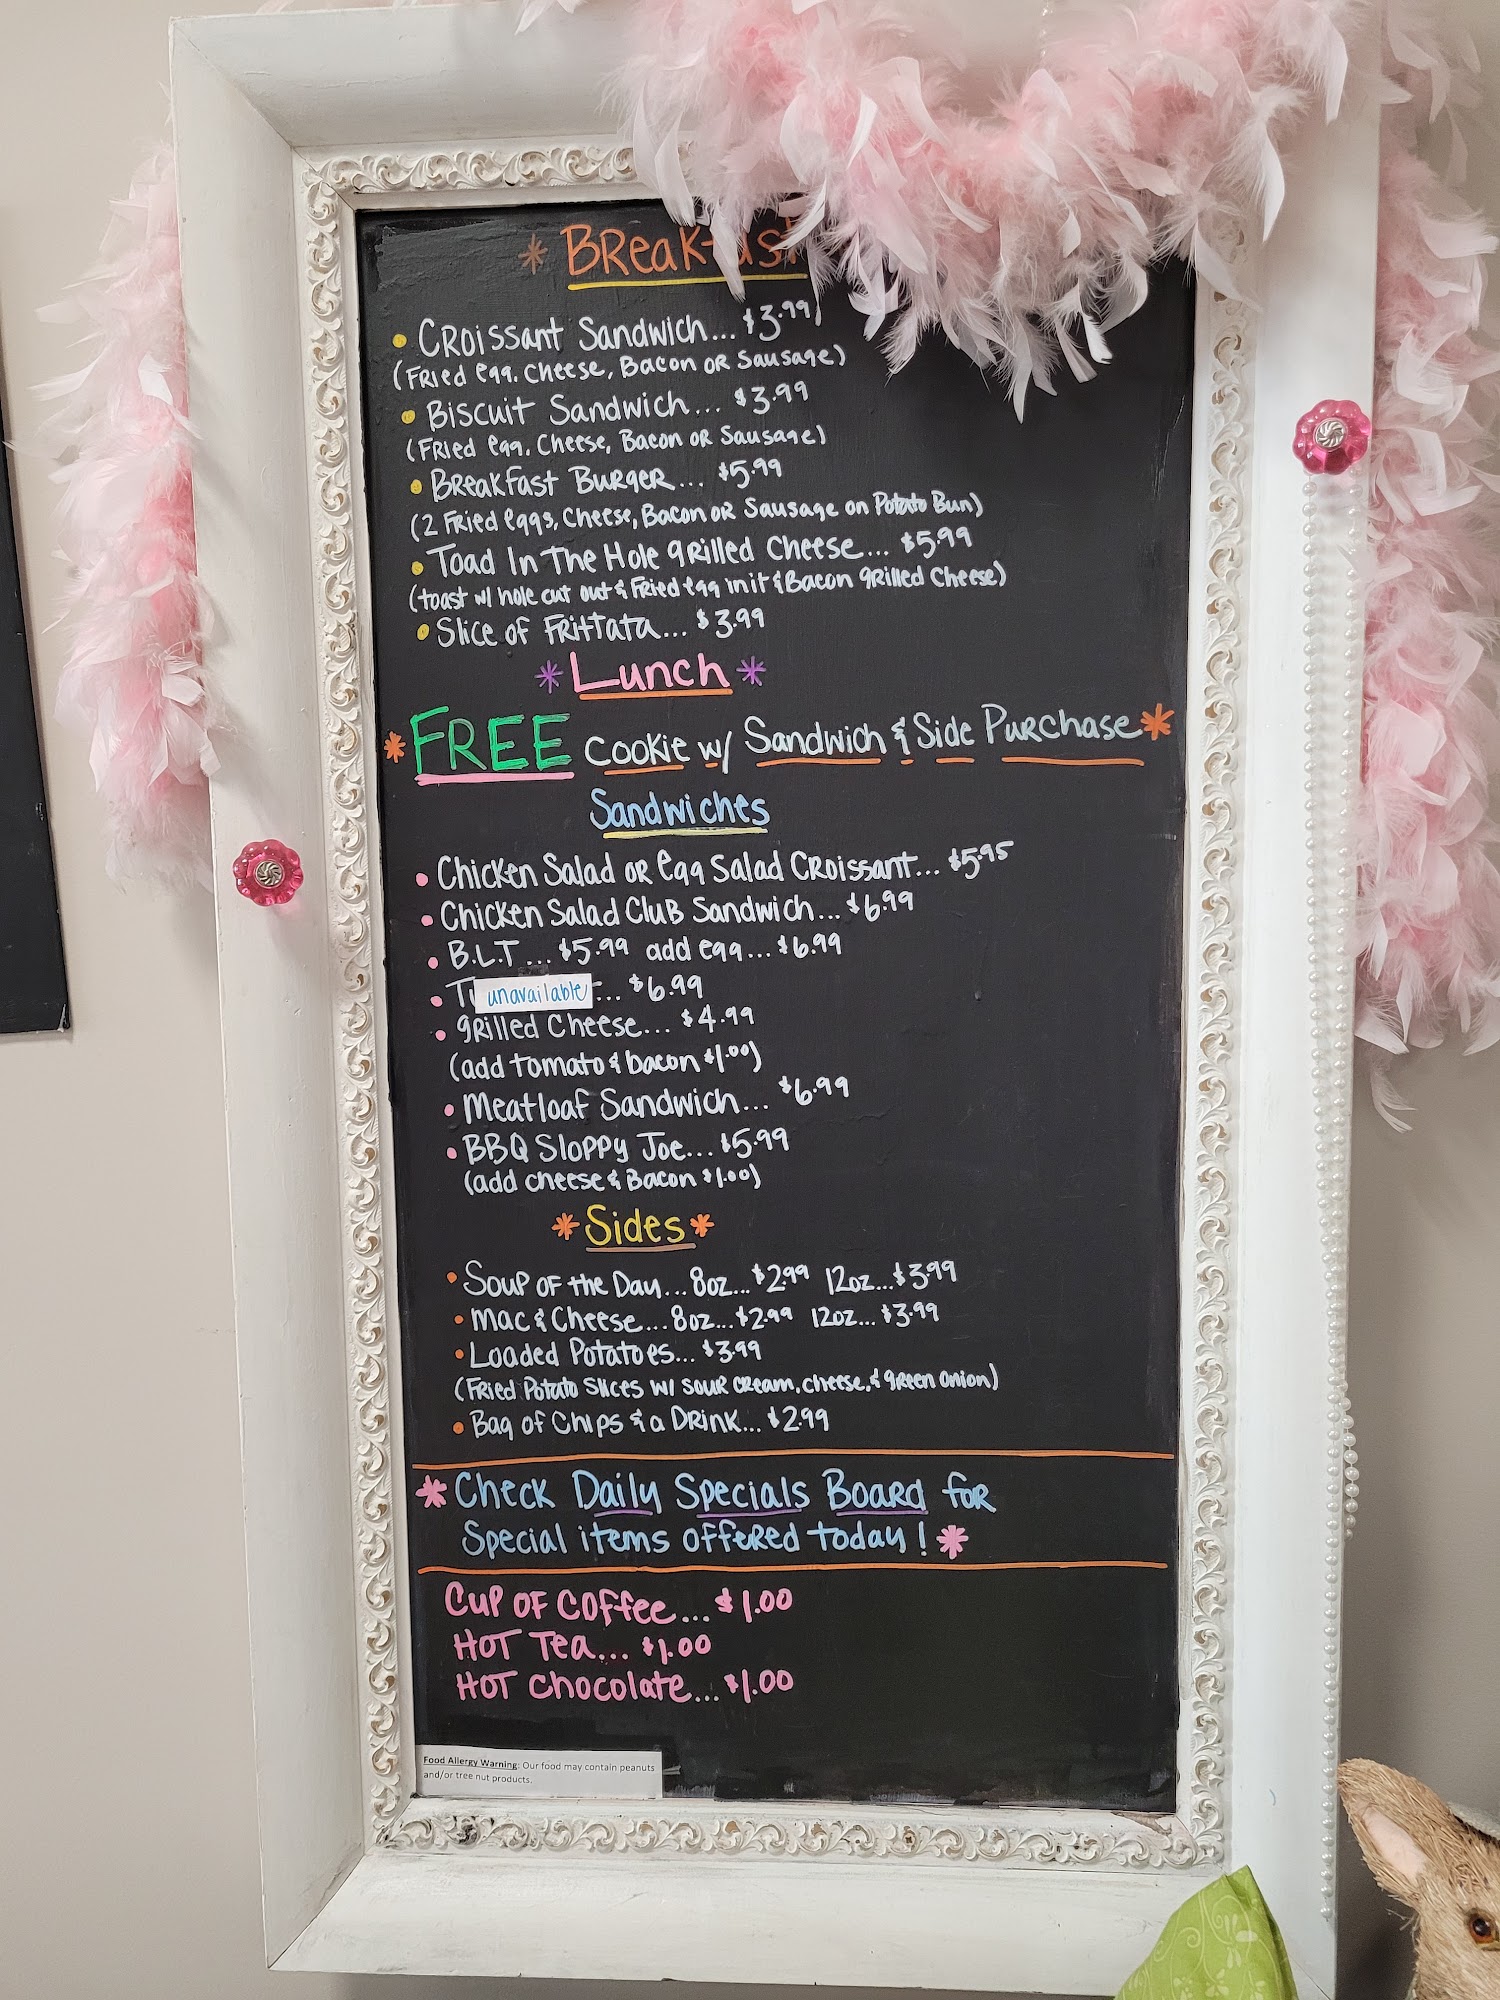 * Breakfast
• Croissant Sandwich... $3.99
(Fried egg, Cheese, Bacon or Sausage)
• Biscuit Sandwich... $3.99
(Fried egg, Cheese, Bacon or Sausage)
• Breakfast Burger... $5.99
(2 Fried eggs, Cheese, Bacon or Sausage on Potato Bun)
• Toad In The Hole grilled Cheese... $5.99
(toast w/ hole cut out & Fried egg in it & Bacon grilled Cheese)
• Slice of Frittata... $3.99
* Lunch *
* FREE Cookie w/ Sandwich & Side Purchase *
Sandwiches
• Chicken Salad or egg Salad Croissant... $5.95
• Chicken Salad Club Sandwich... $6.99
• B.L.T... $5.99 add egg... $6.99
• unavailable ... $6.99
• grilled Cheese... $4.99
(add tomato & bacon $1.00)
• Meatloaf Sandwich... $6.99
• BBQ Sloppy Joe... $5.99
(add cheese & Bacon $1.00)
* Sides *
• Soup of the Day... 8oz... $2.99 12oz... $3.99
• Mac & Cheese... 8oz... $2.99 12oz... $3.99
• Loaded Potatoes... $3.99
(Fried Potato Slices w/ sour cream, cheese, & green onion)
• Bag of Chips & a Drink... $2.99
* Check Daily Specials Board for
Special items offered today! *
Cup of Coffee... $1.00
Hot Tea... $1.00
Hot Chocolate... $1.00
Food Allergy Warning: Our food may contain peanuts
and/or tree nut products.